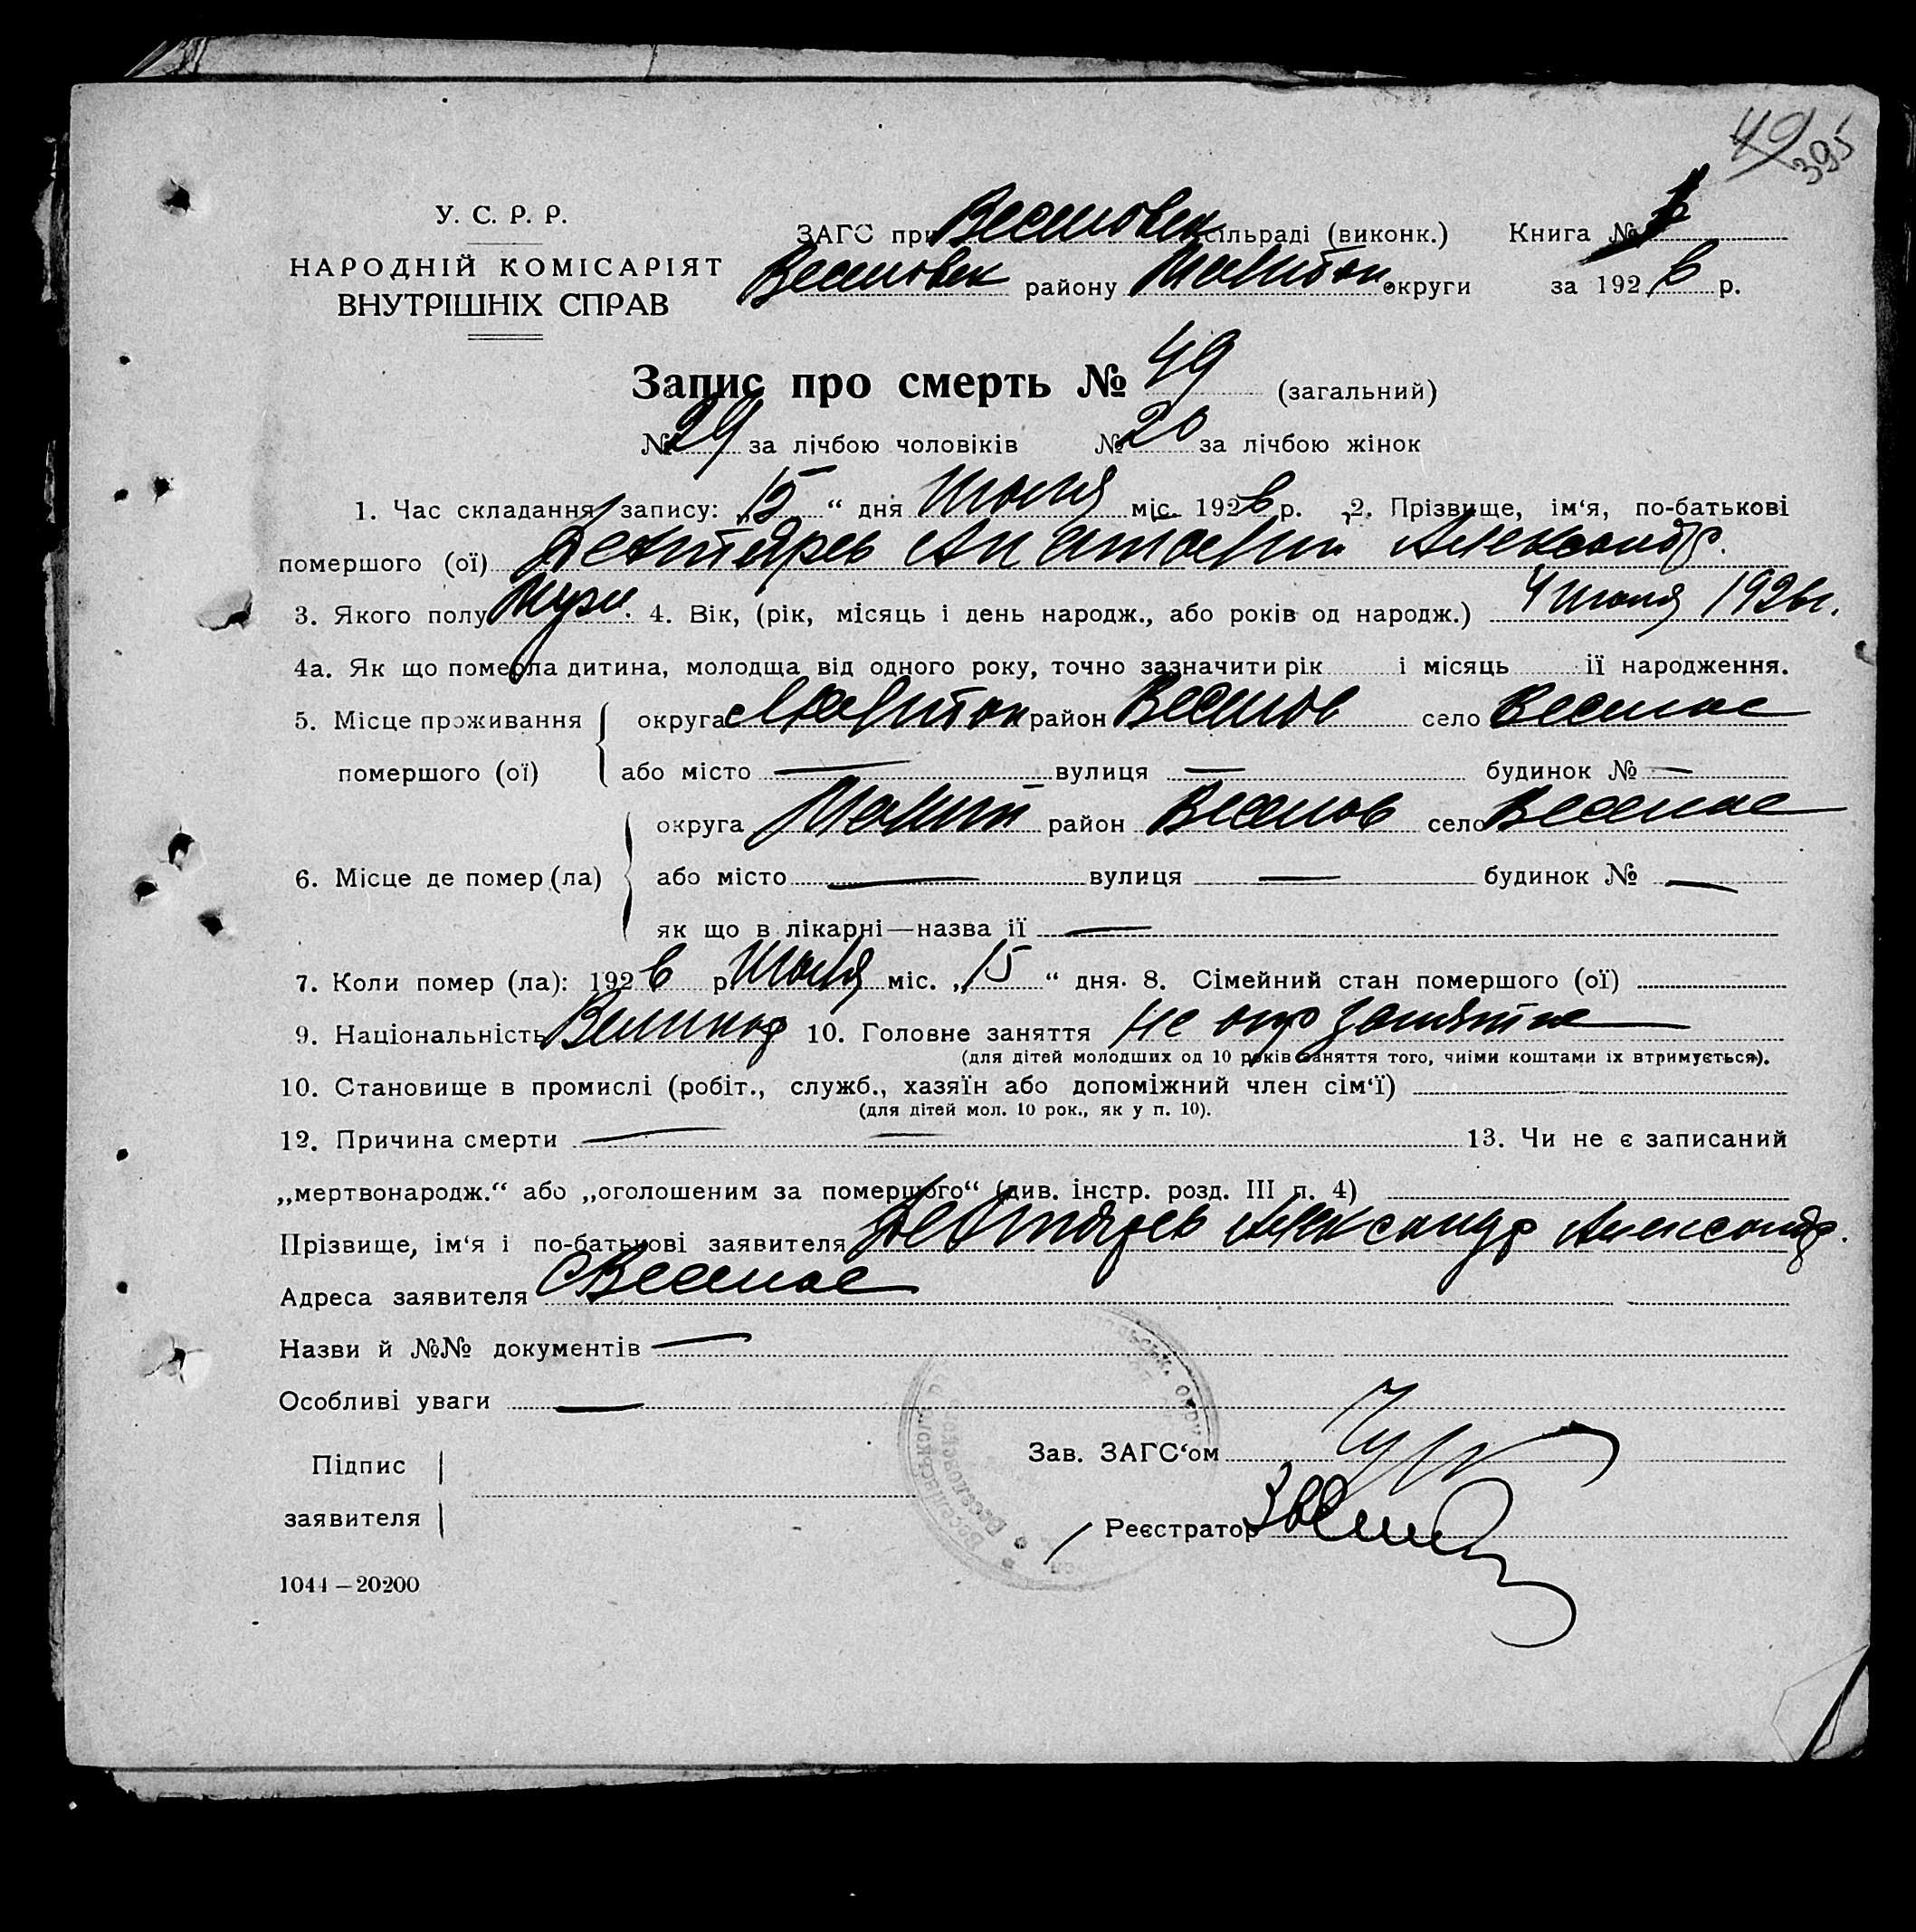 49
395
У. С. Р. Р.
НАРОДНІЙ КОМІСАРІЯТ
ВНУТРІШНІХ СПРАВ
ЗАГС при Веселовск сільраді (виконк.) Книга №
Веселовск району Мелитоп округи за 1926 р.
Запис про смерть № 49 (загальний)
№ 29 за лічбою чоловіків № 20 за лічбою жінок
1. Час складання запису: „15“ дня июля міс. 1926 р. 2. Прізвище, ім‘я, по-батькові
помершого (ої) Дехтярев Анатолий Александр.
3. Якого полу Муж. 4. Вік, (рік, місяць і день народж., або років од народж.) 4 июля 1926 г.
4а. Як що померла дитина, молодща від одного року, точно зазначити рік і місяць її народження.
5. Місце проживання округа Мелитоп район Веселов село Веселое
помершого (ої) або місто — вулиця — будинок № —
округа Мелит район Веселов село Веселое
6. Місце де помер (ла) або місто — вулиця — будинок № —
як що в лікарні—назва її —
7. Коли помер (ла): 1926 р июля міс. „15“ дня. 8. Сімейний стан помершого (ої)
9. Національність Великор 10. Головне заняття не опр занятие
(для дітей молодших од 10 років заняття того, чиїми коштами їх втримується).
10. Становище в промислі (робіт., служб., хазяїн або допоміжний член сім‘ї)
(для дітей мол. 10 рок., як у п. 10).
12. Причина смерти — — 13. Чи не є записаний
„мертвонародж.“ або „оголошеним за помершого“ (див. інстр. розд. III п. 4)
Прізвище, ім‘я і по-батькові заявителя Дехтярев Александр Александр.
Адреса заявителя с Веселое
Назви й №№ документів —
Особливі уваги —
Зав. ЗАГС‘ом
Підпис
заявителя
Реєстратор
1044—20200